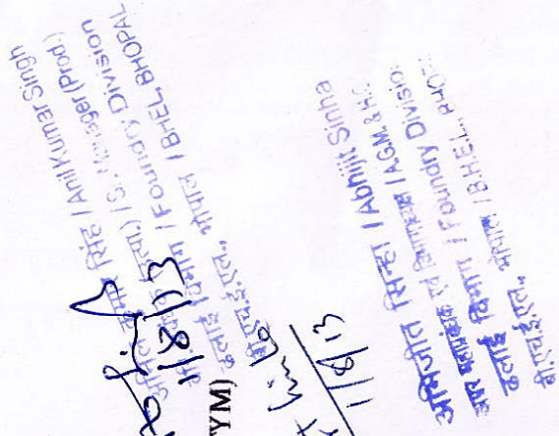 अनिल कुमार सिंह / Anil Kumar Singh
/ S. Manager (Prod.)
ढलाई विभाग / Foundry Division
बी.एच.ई.एल., भोपाल / BHEL, BHOPAL
1/8/13
YM)
अभिजीत सिन्हा / Abhijit Sinha
अपर महाप्रबंधक एवं विभागाध्यक्ष / AGM & HO
ढलाई विभाग / Foundry Divisio
बी.एच.ई.एल., भोपाल / B.H.E.L.,
1/8/13